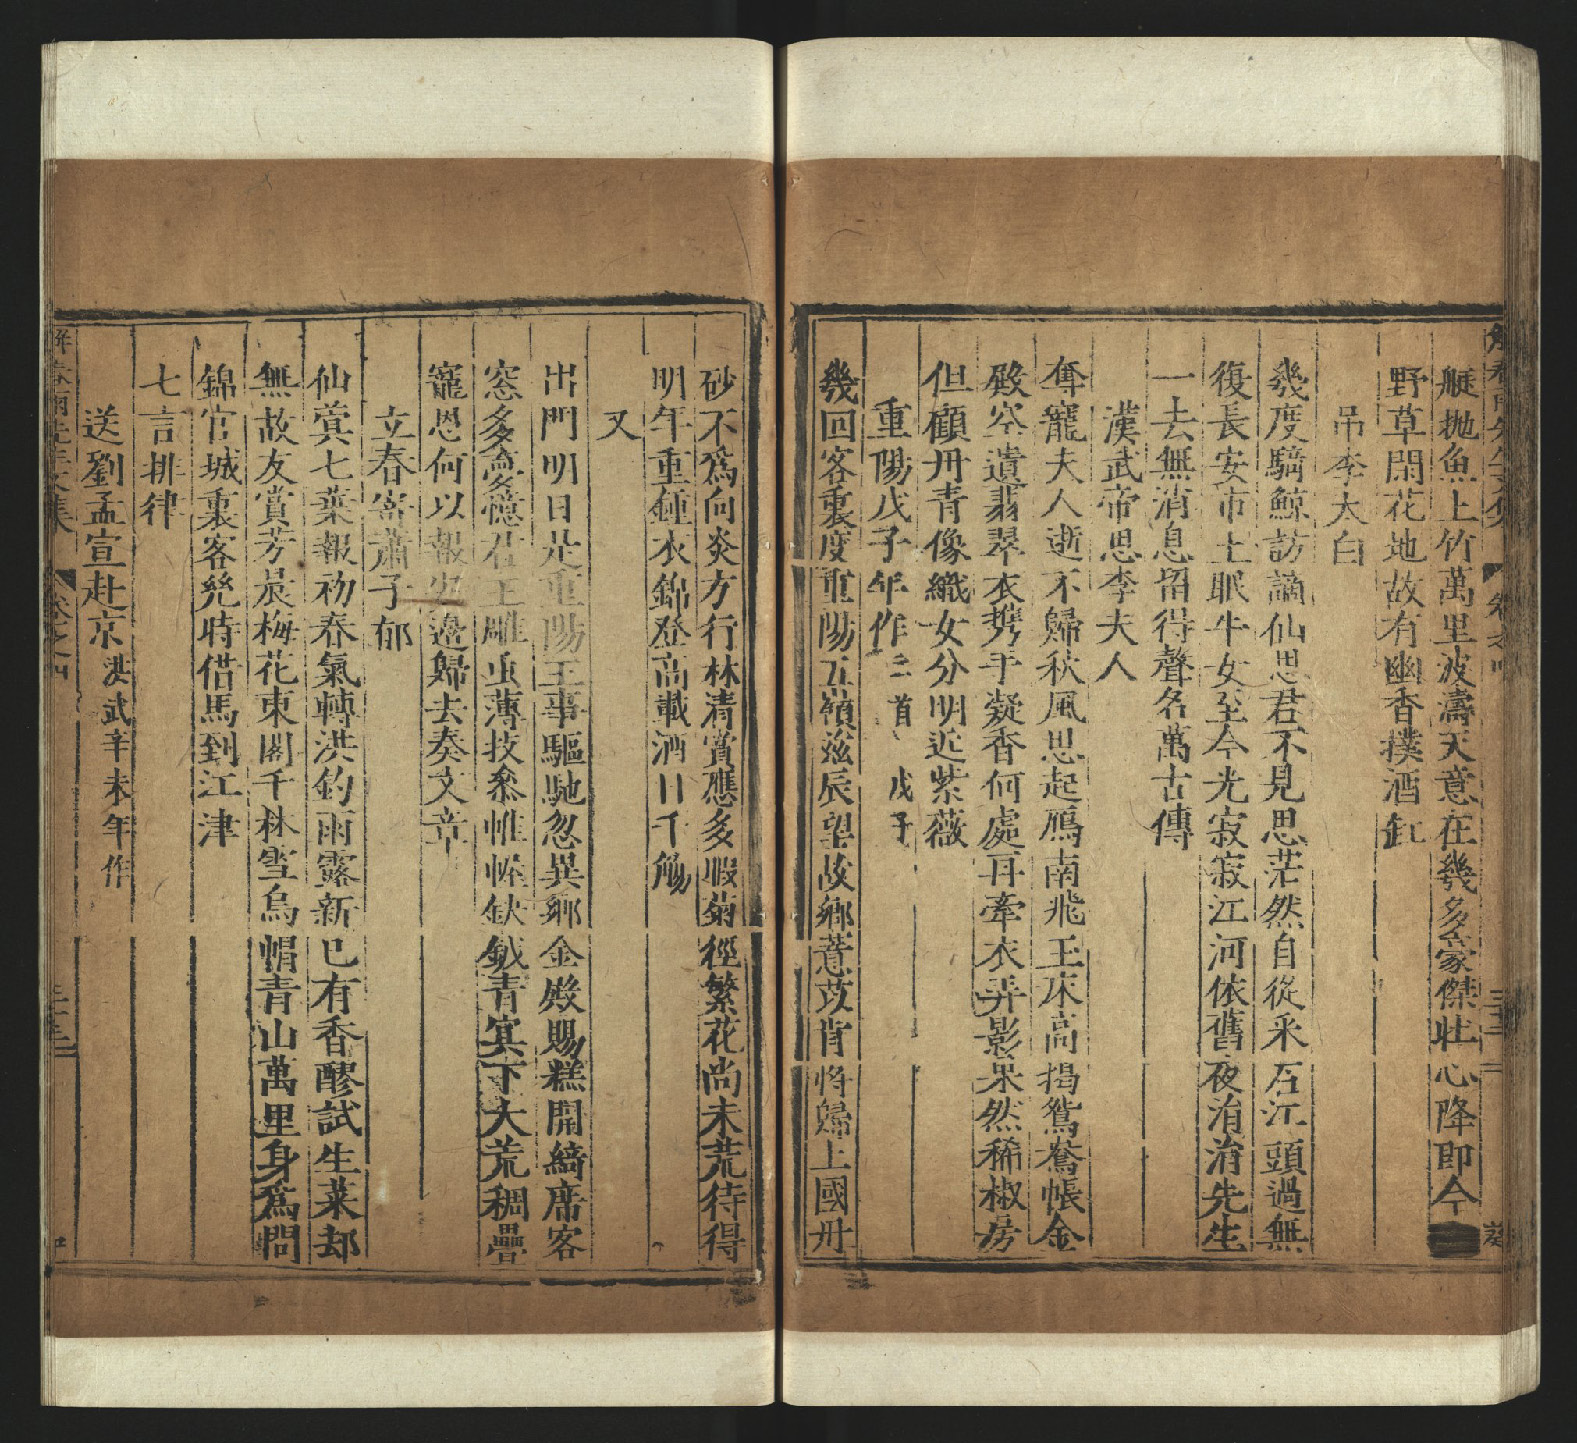 艇拋魚上竹萬里波濤天意在幾多豪傑壯心降即今
野草閑花地故有幽香撲酒缸
吊李太白
幾度騎鯨訪謫仙思君不見思茫然自從采石江頭過無
復長安市上眠牛女至今光寂寂江河依舊夜涓涓先生
一去無消息留得聲名萬古傳
漢武帝思李夫人
奪寵夫人逝不歸秋風思起鴈南飛玉床高揭鴛鴦帳金
殿空遺翡翠衣携手凝香何處再牽衣弄影果然稀椒房
但顧丹青像織女分明近紫薇
重陽戊子年作二首 戊子
幾回客裏度重陽五嶺茲辰望故鄉薏苡肯將歸上國丹
砂不爲向炎方行林清賞應多暇菊徑繁花尚未荒待得
明年重鍾衣錦登高載酒日千觴
又
出門明日是重陽王事驅馳忽異鄉金殿賜糕開綺席客
窓多夢憶君王雕虫薄技叅帷幄鈇鉞青冥下大荒稠疊
寵恩何以報安邊歸去奏文章
立春寄蕭子郁
仙蓂七葉報初春氣轉洪鈞雨露新已有香醪試生菜却
無故友賞芳晨梅花東閣千林雪烏帽青山萬里身爲問
錦官城裏客幾時借馬到江津
七言排律
送劉孟宣赴京洪武辛未年作
解春雨先生文集 卷之四